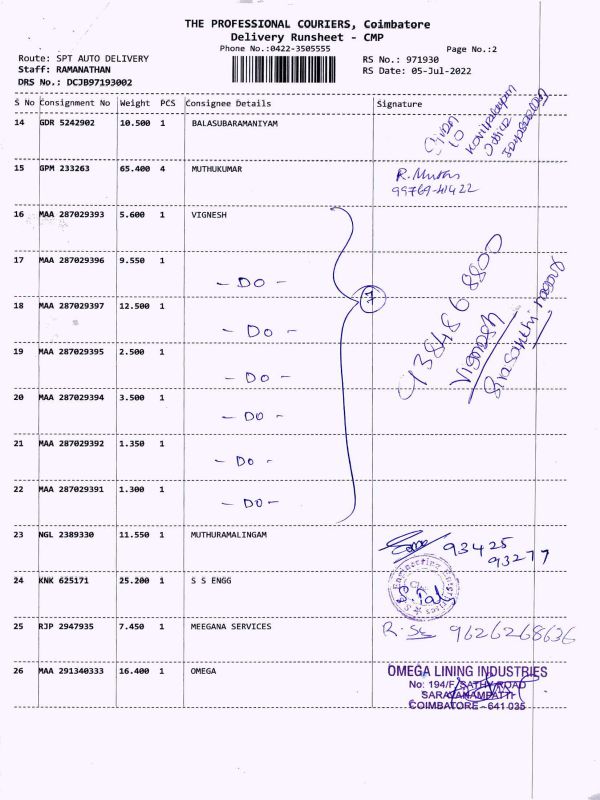 THE PROFESSIONAL COURIERS, Coimbatore
Delivery Runsheet - CMP
Phone No.:0422-3505555
Page No.:2
Route: SPT AUTO DELIVERY
RS No.: 971930
Staff: RAMANATHAN
RS Date: 05-Jul-2022
DRS No.: DCJB97193002
S No Consignment No Weight PCS Consignee Details Signature
14 GDR 5242902 10.500 1 BALASUBARAMANIYAM
15 GPM 233263 65.400 4 MUTHUKUMAR
99769-41422
16 MAA 287029393 5.600 1 VIGNESH
17 MAA 287029396 9.550 1
- DO -
7
93848 68800
18 MAA 287029397 12.500 1
- DO -
Vignesh
19 MAA 287029395 2.500 1
- DO -
20 MAA 287029394 3.500 1
- DO -
21 MAA 287029392 1.350 1
- DO -
22 MAA 287029391 1.300 1
- DO -
23 NGL 2389330 11.550 1 MUTHURAMALINGAM
93425
93277
24 KNK 625171 25.200 1 S S ENGG
25 RJP 2947935 7.450 1 MEEGANA SERVICES
9626268636
26 MAA 291340333 16.400 1 OMEGA
OMEGA LINING INDUSTRIES
No: 194/F, SATHY ROAD
SARAVANAMPATTI
COIMBATORE - 641 035